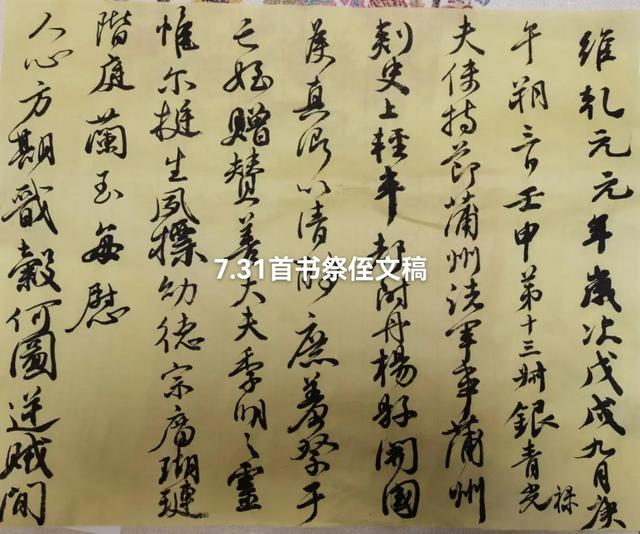 維乾元元年歲次戊戌九月庚
午朔三日壬申第十三叔銀青光祿
夫使持節蒲州諸軍事蒲州
刺史上輕車都尉丹楊縣開國
侯真卿以清酌庶羞祭于
亡姪贈贊善大夫季明之靈
惟尔挺生夙標幼德宗廟瑚璉
階庭蘭玉每慰
人心方期戩穀何圖逆賊間
7.31首书祭侄文稿